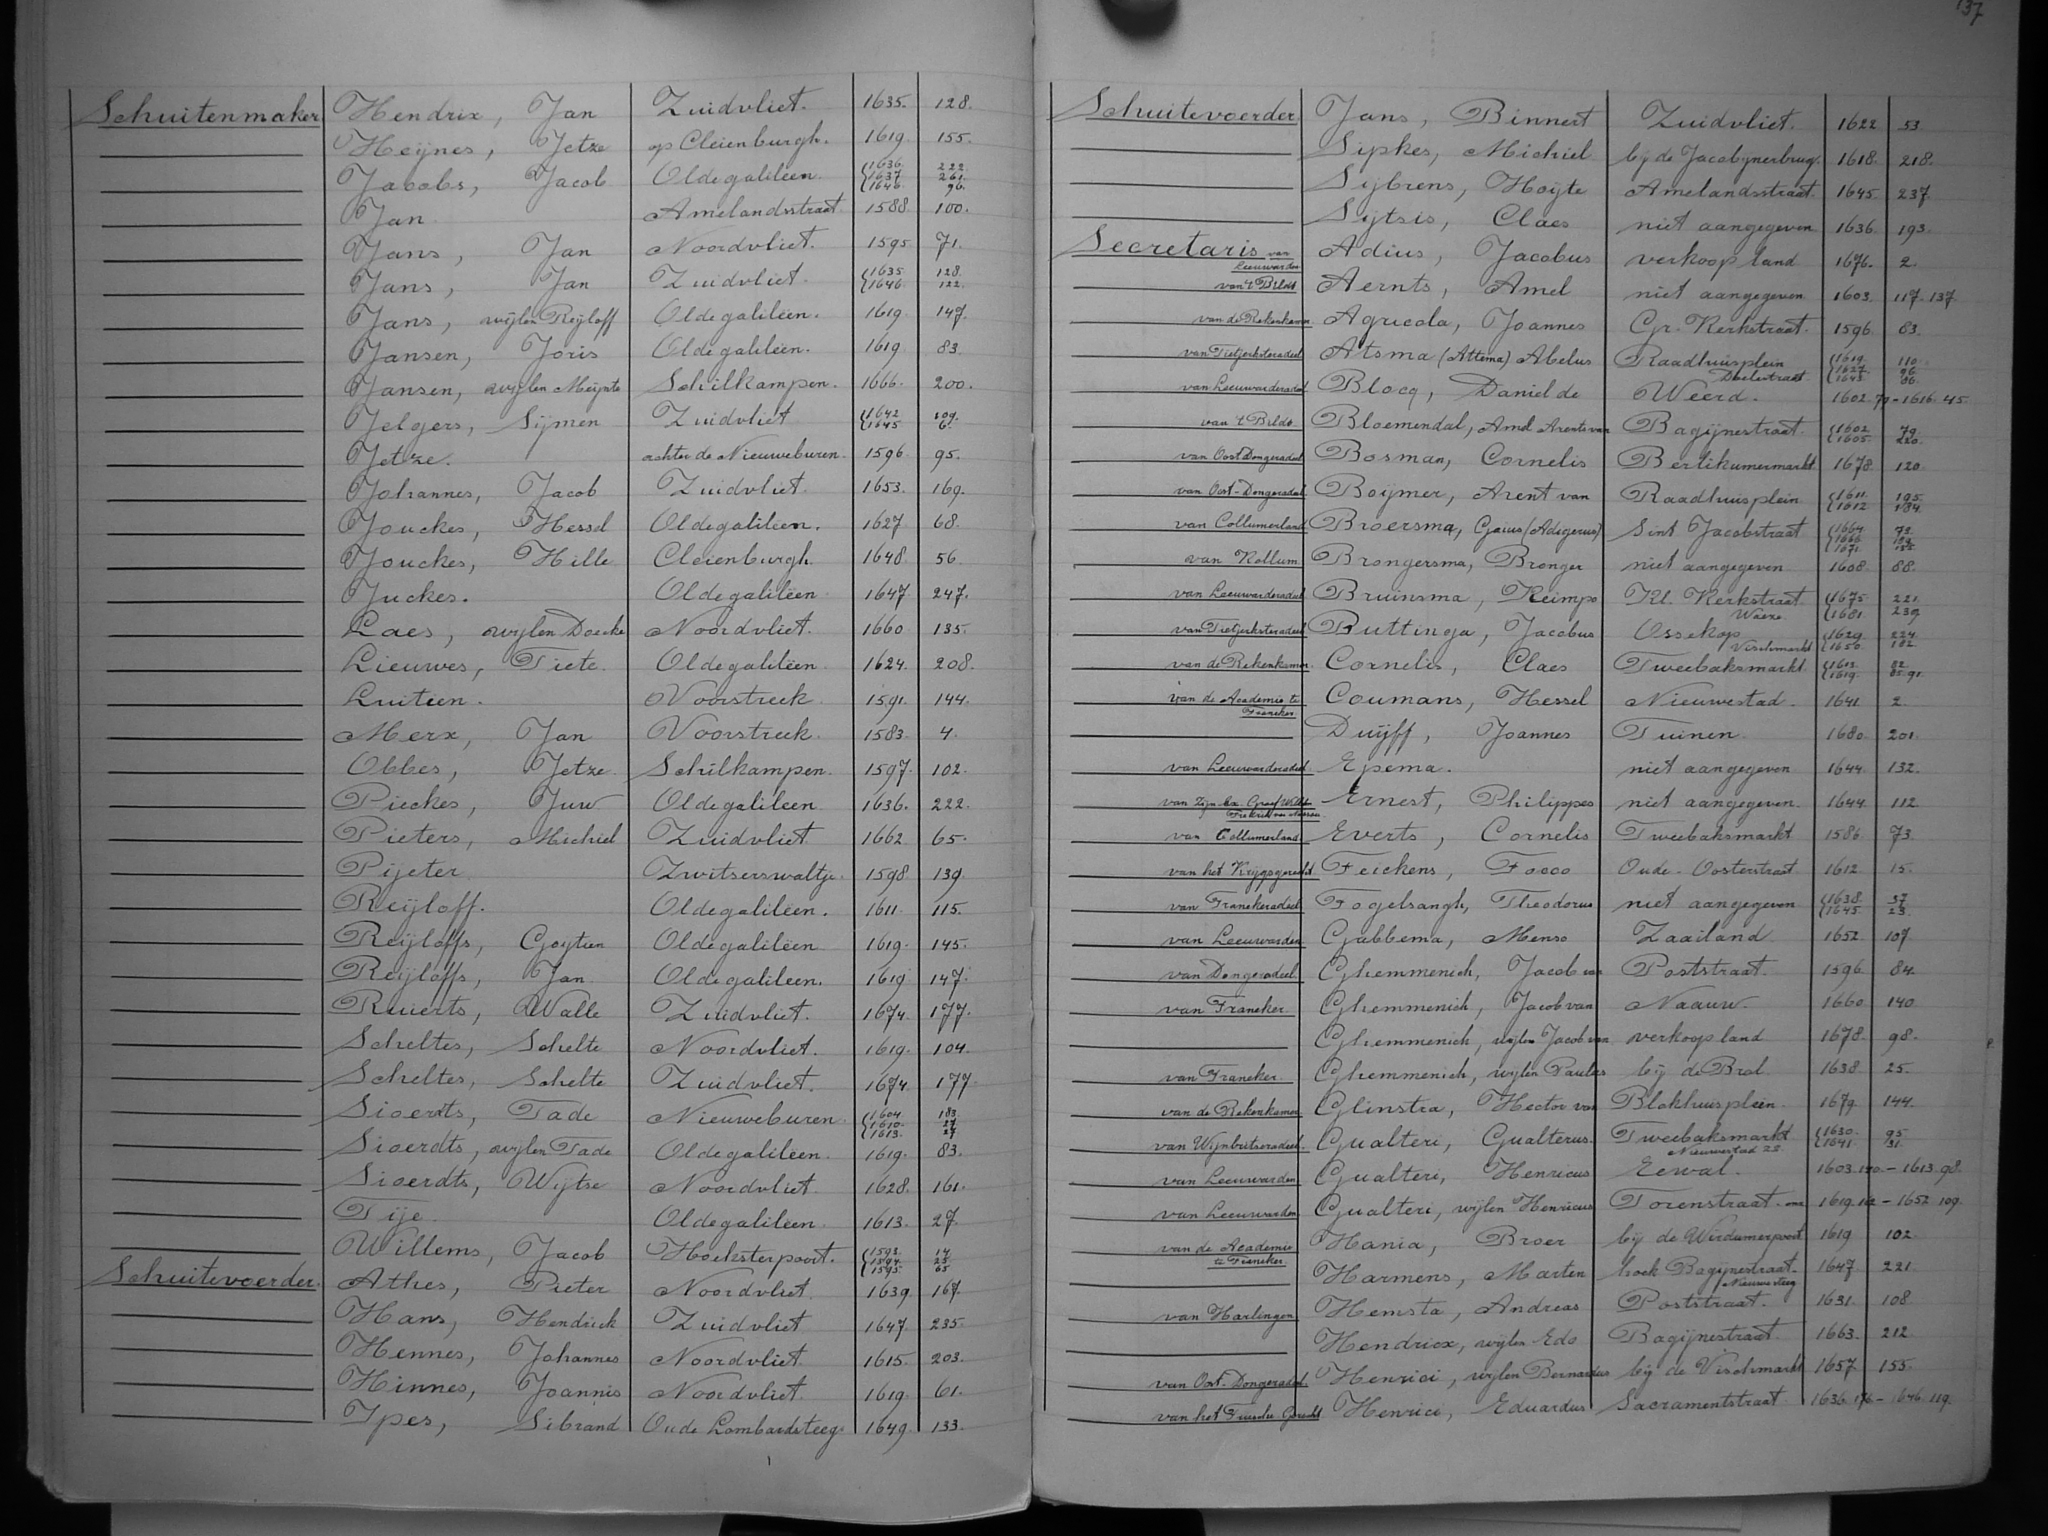 137
Schuitenmaker Hendrix, Jan Zuidvliet. 1635. 128.
Heijnes, Jetze op Cleienburgh. 1619. 155.
Jacobs, Jacob Oldegalileen. 1636. 222. 1637 261. 1646. 96.
Jan Amelandsstraat 1588. 100.
Jans, Jan Noordvliet. 1595 71.
Jans, Jan Zuidvliet. 1635. 128. 1646. 122.
Jans, wijlen Reijloff Oldegalileen. 1619. 147.
Jansen, Joris Oldegalileen. 1619 83.
Jansen, wijlen Meijnte Schilkampen. 1666. 200.
Jelgers, Sijmen Zuidvliet 1642 109. 1645 6.
Jetze. achter de Nieuweburen. 1596. 95.
Johannes, Jacob Zuidvliet. 1653. 169.
Jouckes, Hessel Oldegalileen. 1627 68.
Jouckes, Hille Cleienburgh. 1648 56.
Juckes. Oldegalileen 1647. 247.
Laes, wijlen Doecke Noordvliet. 1660 135.
Lieuwes, Tiete. Oldegalileen 1624. 208.
Luitien. Voorstreek 1591. 144.
Merx, Jan Voorstreek. 1583. 4.
Obbes, Jetze Schilkampen. 1597. 102.
Pieckes, Juw Oldegalileen 1636. 222.
Pieters, Michiel Zuidvliet 1662 65.
Pijeter Zwitserswaltje. 1598. 139.
Reijloff. Oldegalileen. 1611. 115.
Reijloffs, Goijtien Oldegalileen 1619. 145.
Reijloffs, Jan. Oldegalileen. 1619 147.
Ruierts, Walle Zuidvliet. 1674. 177.
Scheltes, Schelte Noordvliet. 1619. 104.
Scheltes, Schelte Zuidvliet. 1674. 177
Sioerdts, Tade Nieuweburen 1604 183. 1610. 27 1613. 27
Sioerdts, wijlen Tade Oldegalileen. 1619. 83.
Sioerdts, Wijtse Noordvliet 1628. 161.
Tije Oldegalileen. 1613. 27.
Willems, Jacob Hoeksterpoort. 1593. 14 1594. 25. 1595. 65
Schuitevoerder. Athes, Pieter Noordvliet. 1639. 167.
Hans, Hendrick Zuidvliet 1647. 235.
Hennes, Johannes Noordvliet. 1615. 203.
Hinnes, Joannis Noordvliet. 1619. 61.
Ypes, Sibrand Oude Lombardsteeg. 1649. 133.
Schuitevoerder Jans, Binnert Zuidvliet. 1622 53
Sipkes, Michiel bij de Jacobijnerbrug. 1618. 218.
Sijbrens, Hoijte Amelandsstraat. 1645. 237.
Sijtsis, Claes niet aangegeven 1636. 193.
Secretaris van Leeuwarden Adius, Jacobus verkoop land 1676. 2.
van 't Bildt Aernts, Amel niet aangegeven 1603. 117. 137
van de Rekenkamer. Agricola, Joannes Gr. Kerkstraat. 1596. 83.
van Tietjerksteradeel Atsma (Attema) Abelus Raadhuisplein Doelestraat. 1619. 110. 1627. 96. 1643. 86.
van Leeuwarderadeel Blocq, Daniel de Weerd. 1602. 79 - 1616. 45.
van 't Bildt. Bloemendal, Amel Arents van Bagijnestraat. 1602. 79. 1605. 220.
van Oost Dongeradeel Bosman, Cornelis Berlikumermarkt 1678. 120
van Oost-Dongeradeel. Boijmer, Arent van Raadhuisplein 1611. 195. 1612 184.
van Collumerland Broersma, Gaius (Adigerus) Sint Jacobstraat 1664.
van Kollum. Brongersma, Bronger niet aangegeven 1608. 88.
van Leeuwarderadeel Bruinsma, Reimpo Kl. Kerkstraat Waeze. 1675 221. 1681. 239
van Tietjerksteradeel Buttinga, Jacobus Ossekop Vischmarkt 1629. 224. 1650. 102.
van de Rekenkamer Cornelis, Claes Tweebaksmarkt. 1612. 82. 1619. 85.91.
van de Academie te Franeker Coumans, Hessel Nieuwestad. 1641. 2.
Duijff, Joannes Tuinen. 1680. 201.
van Leeuwarderadeel. Epema. niet aangegeven 1644. 132.
van Zijn Ex. Graaf Willem Frederik van Nassau. Ernest, Philippes niet aangegeven. 1644. 112
van Collumerland Everts, Cornelis Tweebaksmarkt 1586. 73.
van het Krijgsgerecht Feickens, Focco Oude-Oosterstraat 1612. 15.
van Franekeradeel Fogelsangh, Theodorus niet aangegeven 1638. 37 1645. 23.
van Leeuwarden Gabbema, Menso Zaailand 1652. 107
van Dongeradeel. Ghemmenich, Jacob van Poststraat. 1596. 84.
van Franeker. Ghemmenich, Jacob van Naauw. 1660. 140
Ghemmenich, wijlen Jacob van verkoop land 1678. 98.
van Franeker. Ghemmenich, wijlen Paulus bij de Brol. 1638. 25.
van de Rekenkamer. Glinstra, Hector van Blokhuisplein. 1679. 144.
van Wijmbritseradeel. Gualteri, Gualterus. Tweebaksmarkt Nieuwestad 22. 1630. 95. 1641. 31.
van Leeuwarden Gualteri, Henricus Eewal. 1603. 120. - 1613. 98.
van Leeuwarden Gualteri, wijlen Henricus Torenstraat. 1619. 102 - 1652. 109.
van de Academie te Franeker. Hania, Broer bij de Wirdumerpoort 1619 102.
Harmens, Marten hoek Bagijnestraat. Nieuwesteeg 1647 221.
van Harlingen Hemsta, Andreas Poststraat. 1631. 108
Hendricx, wijlen Edo Bagijnestraat. 1663. 212.
van Oost-Dongeradeel. Henrici, wijlen Bernardus bij de Vischmarkt 1657. 155.
van het Gerecht Henrici, Eduardus Sacramentstraat. 1636. 176 - 1646. 119.